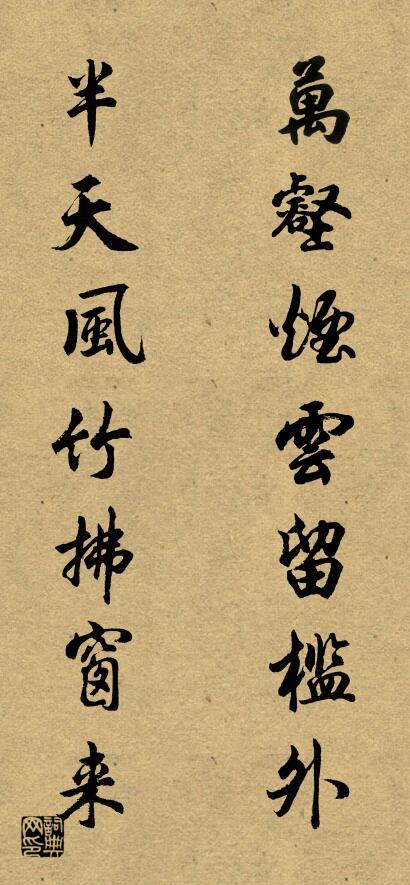 萬壑煙雲留檻外
半天風竹拂窗来
詞典網印